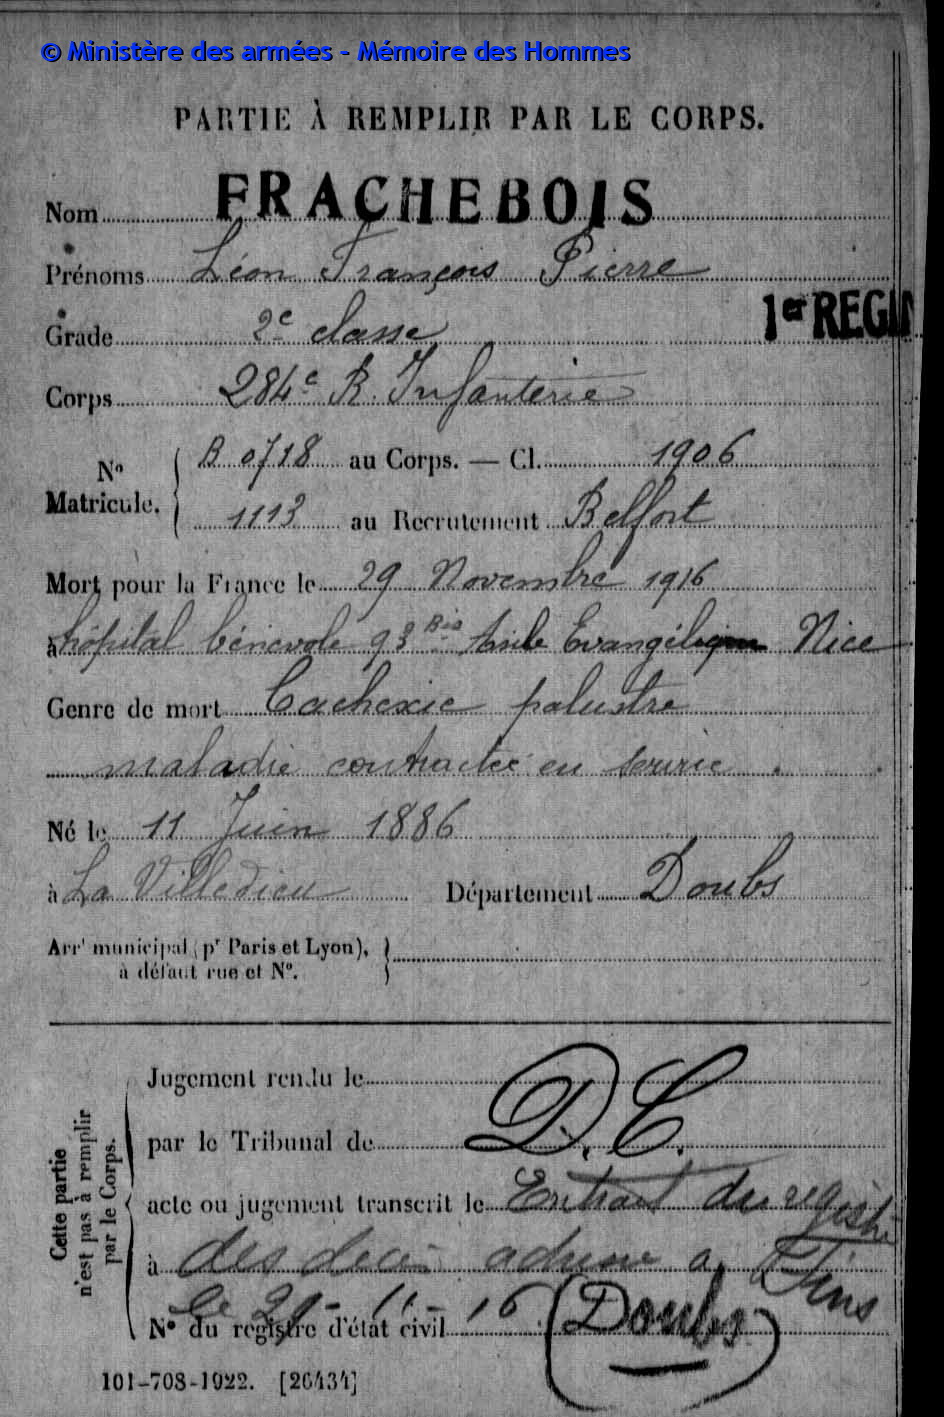 © Ministère des armées - Mémoire des Hommes
PARTIE À REMPLIR PAR LE CORPS.
Nom FRACHEBOIS
Prénoms Léon François Pierre
1er REGI
Grade 2e classe
Corps 284e R. Infanterie
No Matricule. { B 0718 au Corps. — Cl. 1906
1113 au Recrutement Belfort
Mort pour la France le 29 Novembre 1916
à hôpital bénévole 93 Bis Asile Evangélique Nice
Genre de mort Cachexie palustre
maladie contractée en service.
Né le 11 Juin 1886
à La Villedieu Département Doubs
Arrt municipal (pr Paris et Lyon), }
à défaut rue et No.
Cette partie
n'est pas à remplir
par le Corps.
Jugement rendu le
par le Tribunal de D. C.
acte ou jugement transcrit le Extrait du registre
à des décès adressé à Fins
le 29-11-16 (Doubs)
No du registre d'état civil
101-708-1922. [26434]